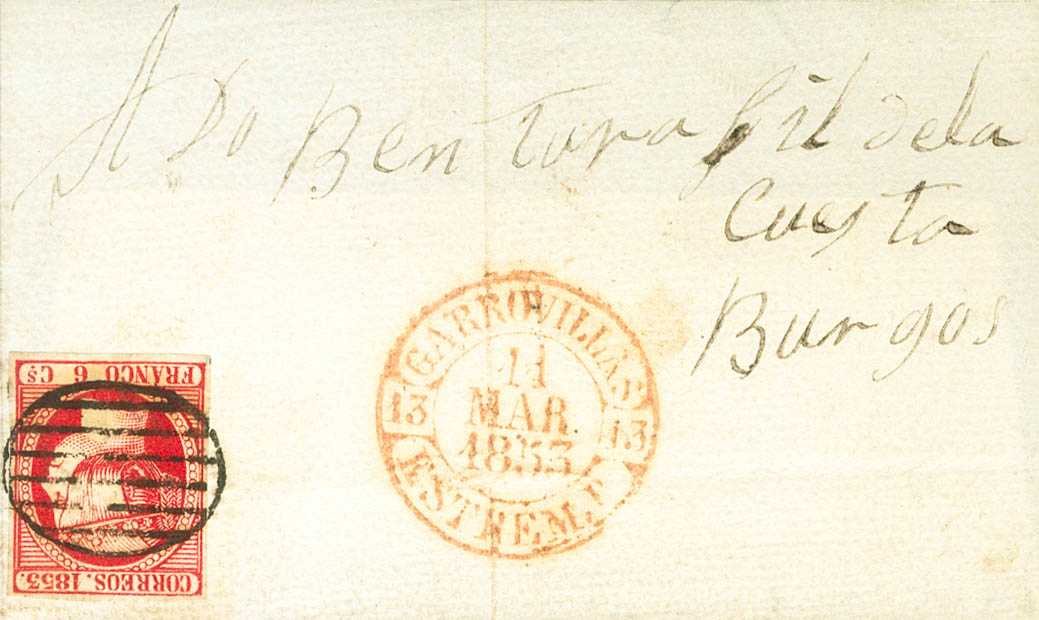 A Do Bentura Gil dela
Cuesta
Burgos
GARROVILLAS
11
MAR.
1853
13
13
ESTREM.
FRANCO 6 Cs
CORREOS. 1853.